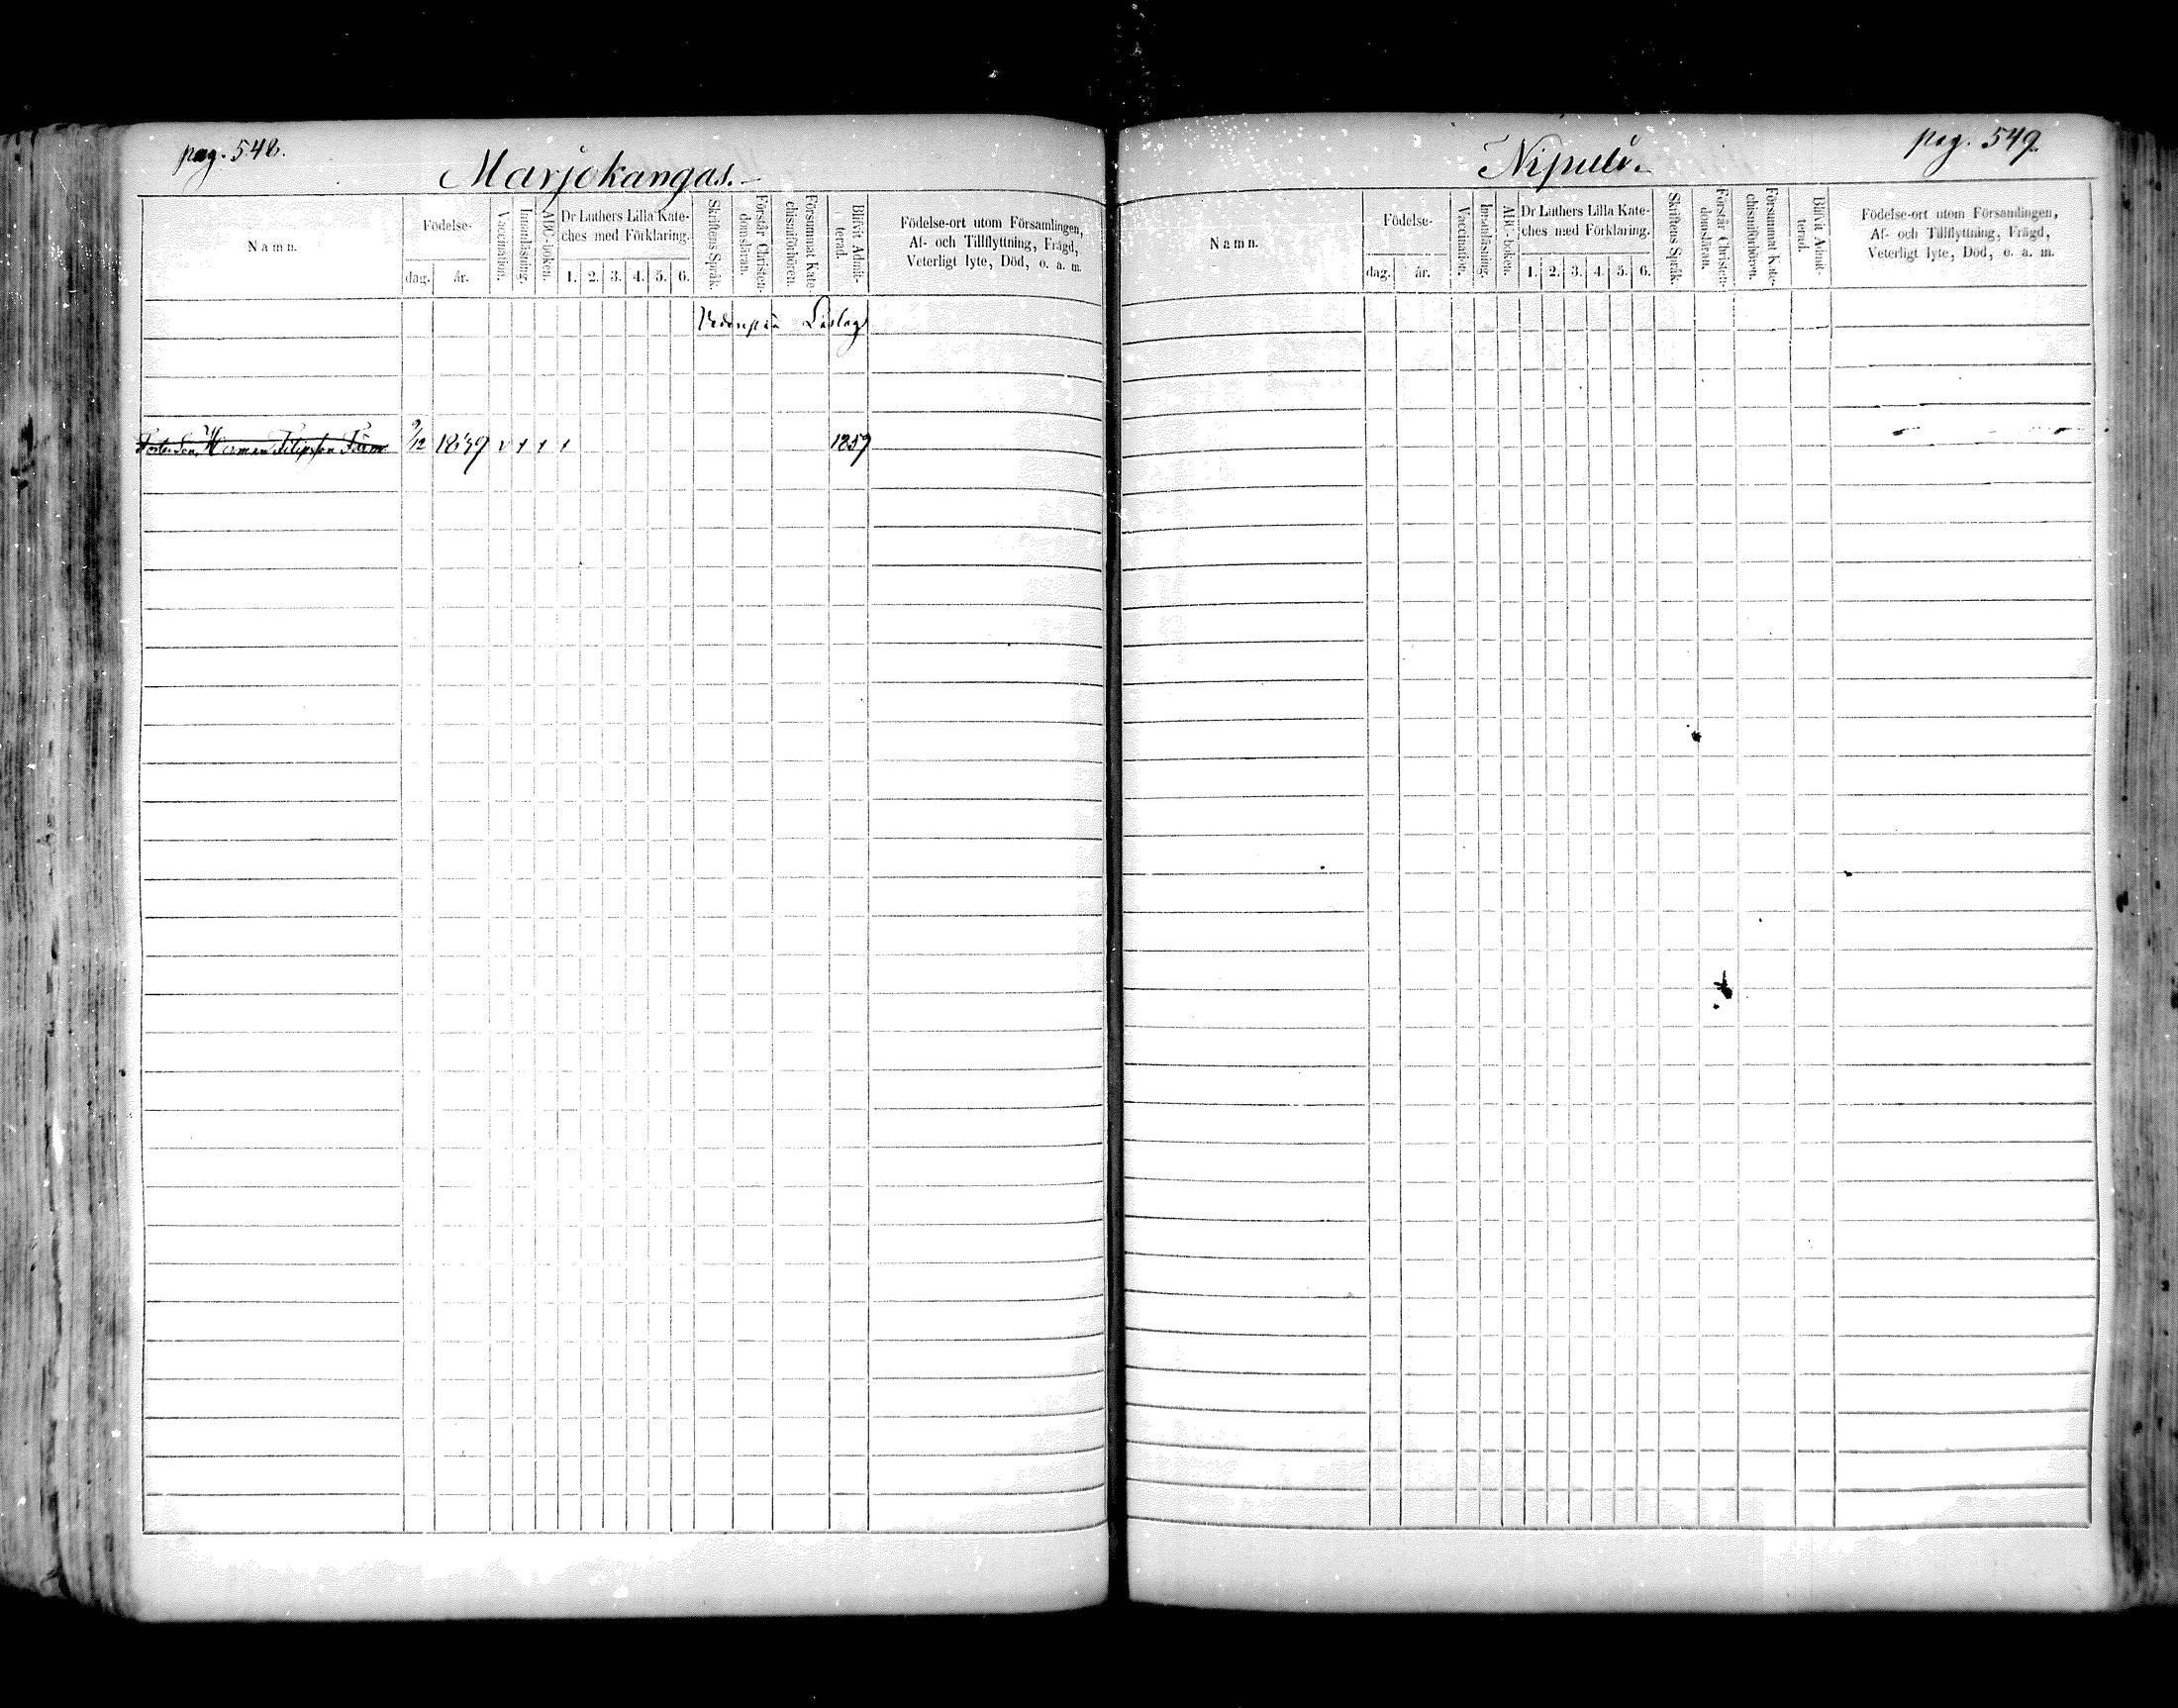 pag. 548.
Marjokangas.
Namn.
Födelse-
dag.
år.
Vaccination.
Innanläsning.
ABC-boken.
Dr Luthers Lilla Kate-
ches med Förklaring.
1. 2. 3. 4. 5. 6.
Skriftens Språk.
Förstår Christen-
domsläran.
Försummat Kate-
chismiförhören.
Blifvit Admit-
terad.
Födelse-ort utom Församlingen,
Af- och Tillflyttning, Frägd,
Veterligt lyte, Död, o. a. m.
Herman Filipsson 9/12 1839 v 1859
pag. 549.
Namn.
Födelse-
dag.
år.
Vaccination.
Innanläsning.
ABC-boken.
Dr Luthers Lilla Kate-
ches med Förklaring.
1. 2. 3. 4. 5. 6.
Skriftens Språk.
Förstår Christen-
domsläran.
Försummat Kate-
chismiförhören.
Blifvit Admit-
terad.
Födelse-ort utom Församlingen,
Af- och Tillflyttning, Frägd,
Veterligt lyte, Död, o. a. m.